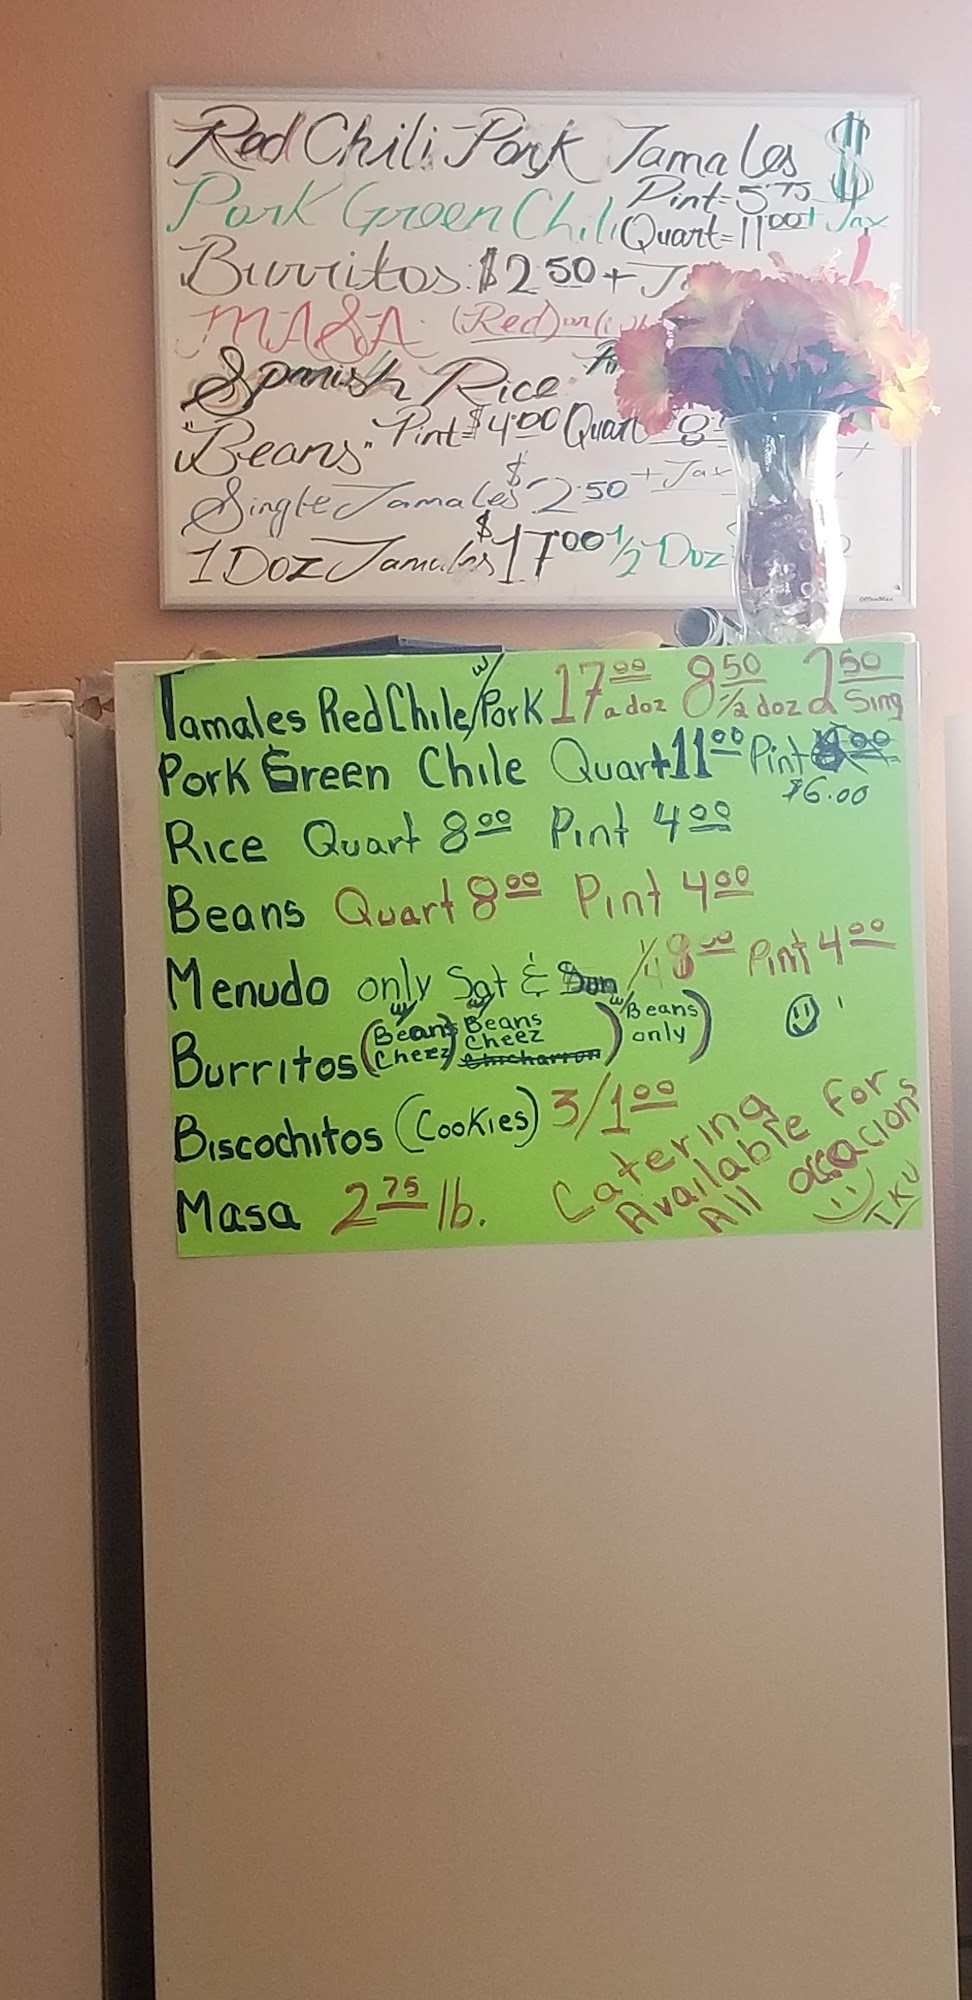 Red Chili Pork Tamales $
Pork Green Chili Pint=5.75 Quart=11.00 + Tax
Burritos: $2.50 + 
MASA (Red)
Spanish Rice
"Beans" Pint=$4.00 Quart 8
Single Tamales $2.50 + Tax
1 Doz Tamales $17.00 1/2 Doz
Tamales Red Chile w/ Pork 17.00 a doz 8.50 1/2 doz 2.50 Sing
Pork Green Chile Quart 11.00 Pint
$6.00
Rice Quart 8.00 Pint 4.00
Beans Quart 8.00 Pint 4.00
Menudo only Sat & Sun 8.00 Pint 4.00
Burritos (w/ Beans Cheez) w/ Beans Cheez Chicharron) w/ Beans only)
Biscochitos (Cookies) 3/1.00
Masa 2.75 lb.
Catering
Available for
All occacions
TKU